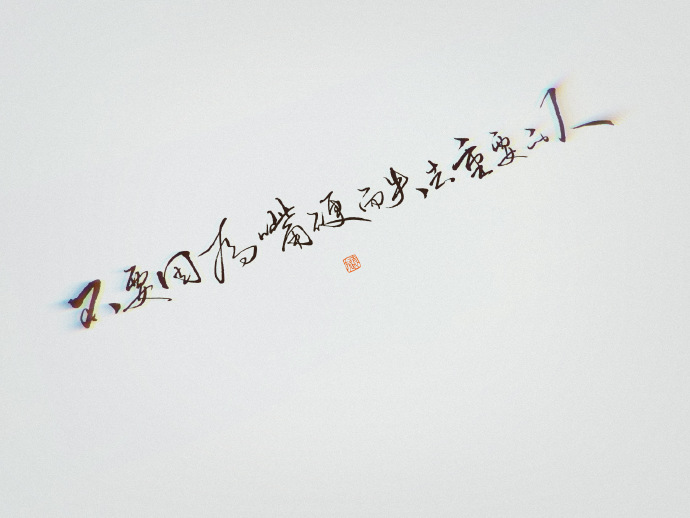 不要因为嘴硬而失去重要的人